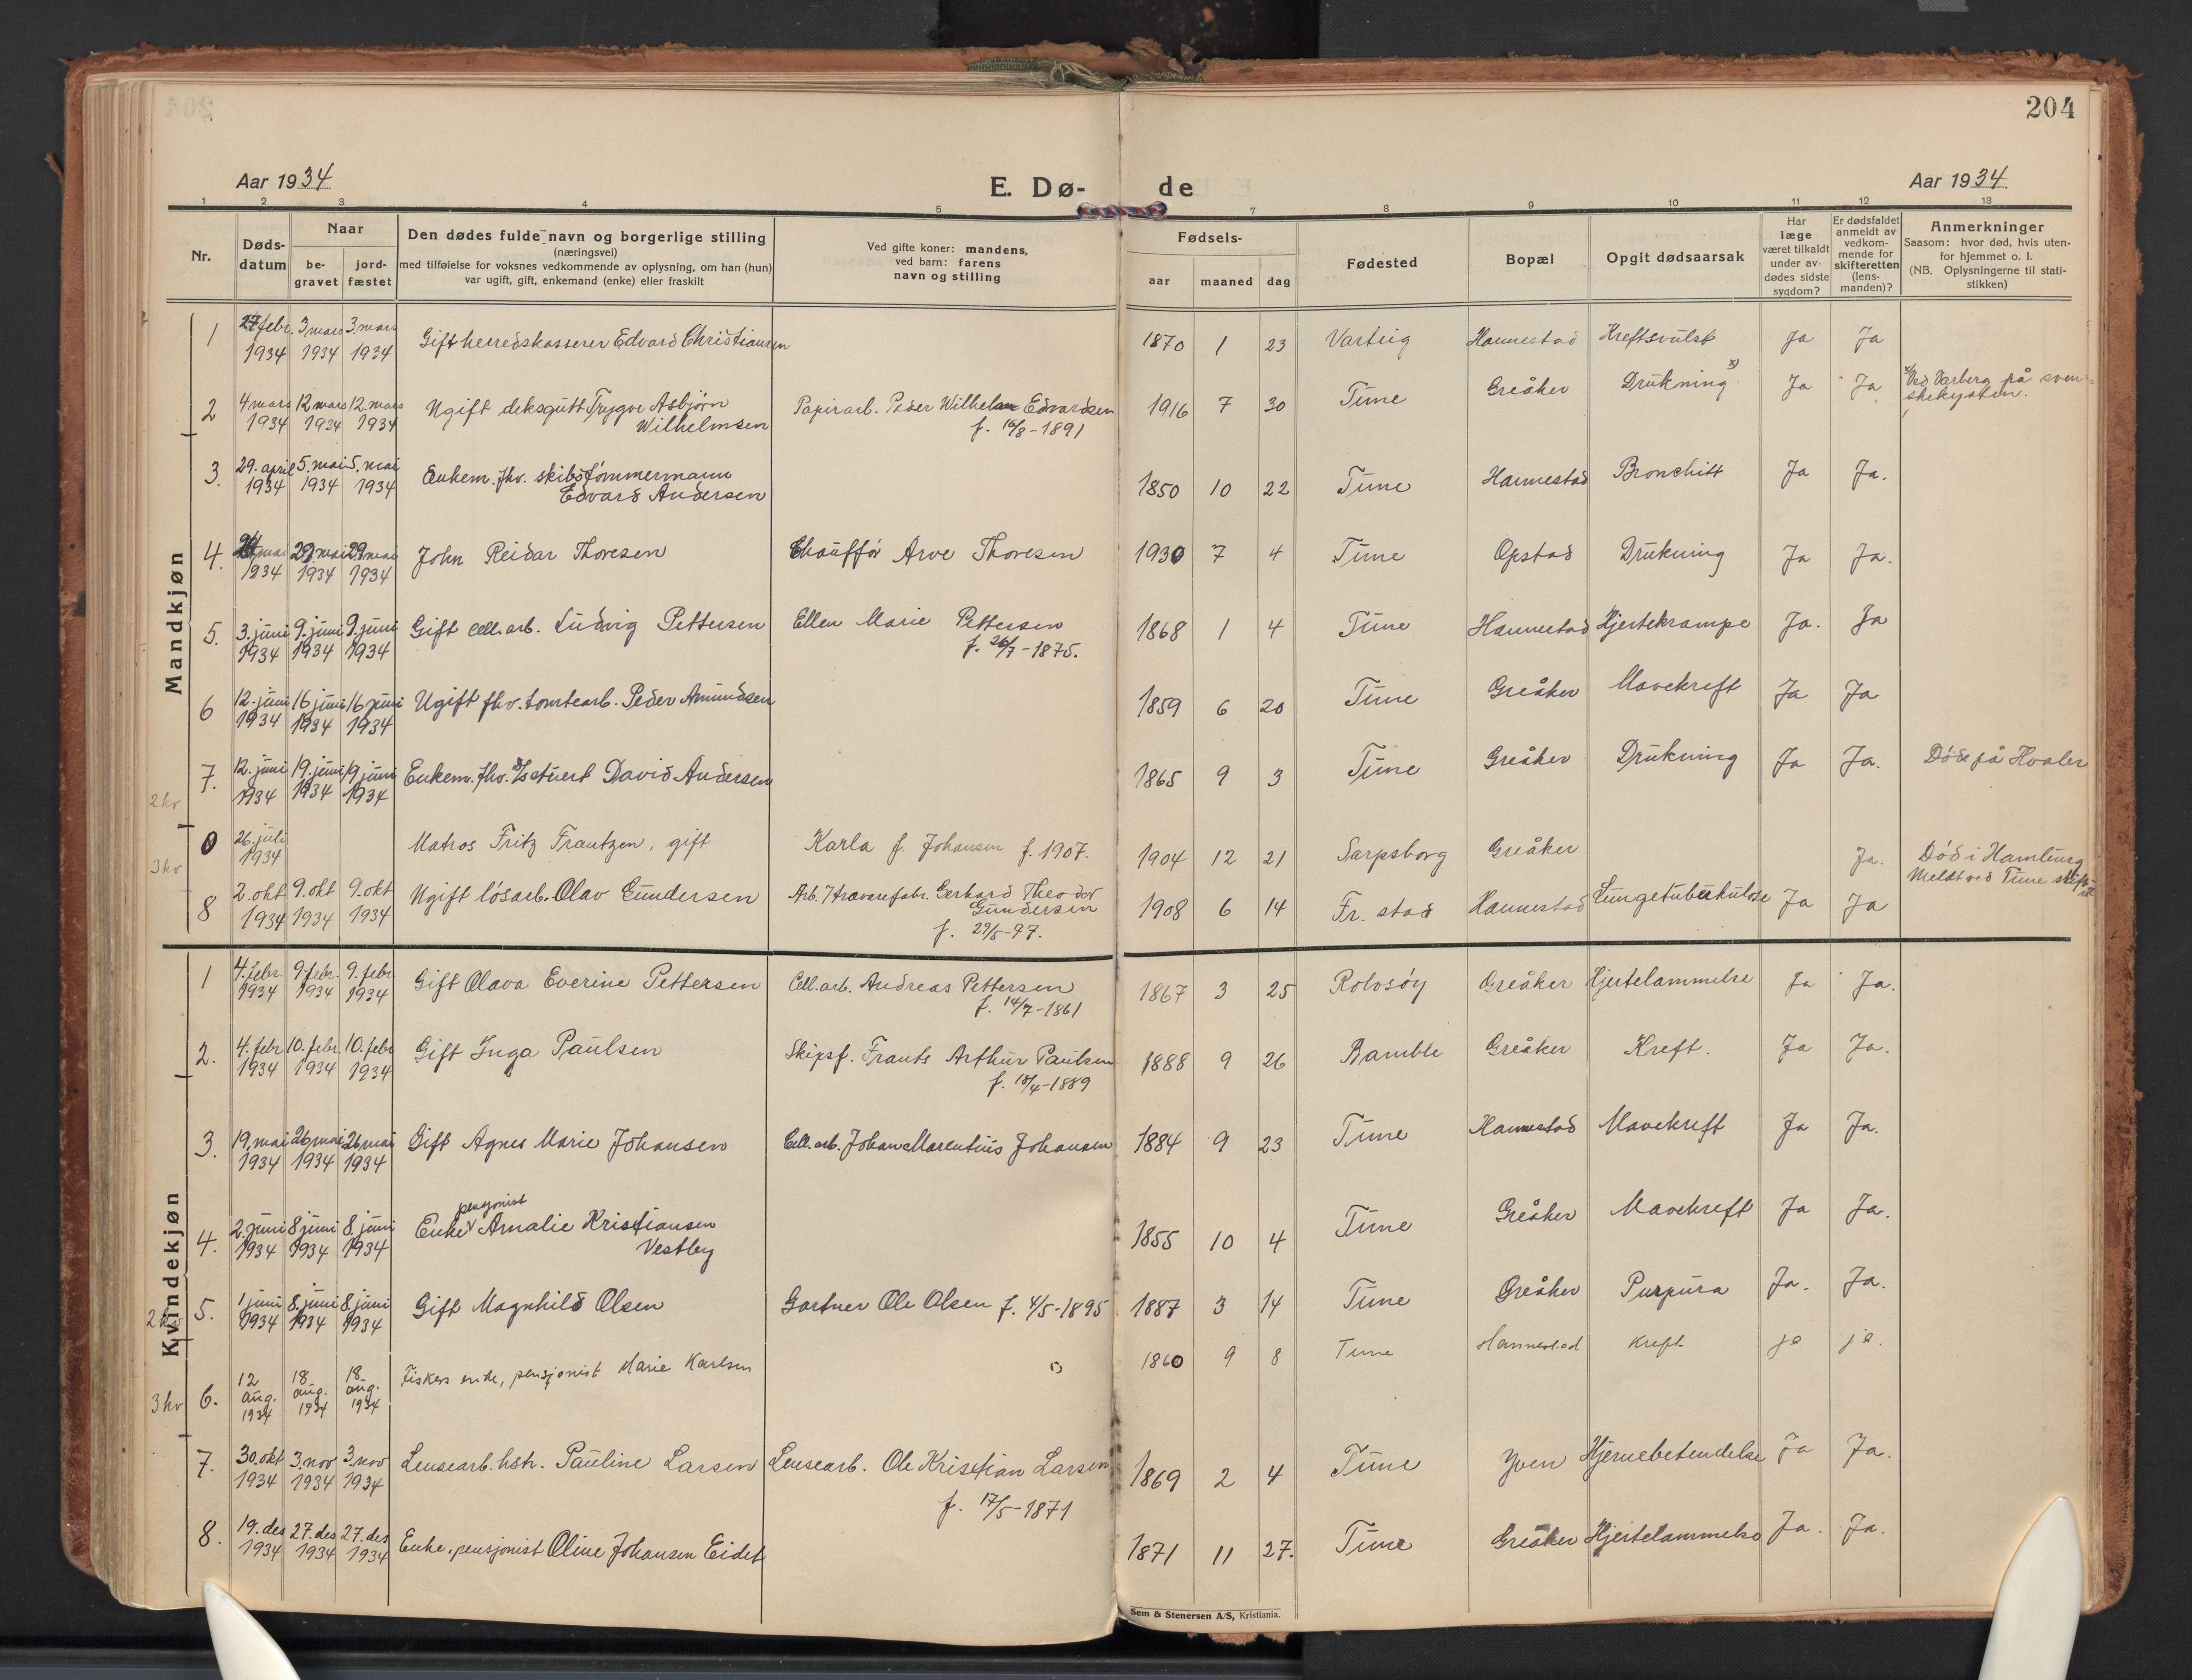 204
Aar 1934
E. Dø-
de
Aar 1934
1 2 3 4 5 7 8 9 10 11 12 13
Nr.
Døds-
datum
Naar
be-
gravet
jord-
fæstet
Den dødes fulde navn og borgerlige stilling
(næringsvei)
med tilføielse for voksnes vedkommende av oplysning, om han (hun)
var ugift, gift, enkemand (enke) eller fraskilt
Ved gifte koner: mandens,
ved barn: farens
navn og stilling
Fødsels-
aar maaned dag
Fødested
Bopæl
Opgit dødsaarsak
Har
læge
været tilkaldt
under av-
dødes sidste
sygdom?
Er dødsfaldet
anmeldt av
vedkom-
mende for
skifteretten
(lens-
manden)?
Anmerkninger
Saasom: hvor død, hvis uten-
for hjemmet o. l.
(NB. Oplysningerne til stati-
stikken)
Mandkjøn
1 27 febr. 3 mars 3. mars Gift herredskasserer Edvard Christiansen 1870 1 23 Varteig Hannestad Kreftsvulst Ja Ja
1934 1934 1934
2 4 mars 12 mars 12. mars Ugift deksgutt Trygve Asbjørn Papirarb. Peder Wilhelm Edvardsen 1916 7 30 Tune Greåker Drukning x) Ja Ja x/ Ved Varberg på sven-
1934 1934 1934 Wilhelmsen f. 16/8-1891 skekysten.
3. 29. april 5. mai 5. mai Enkem. fhv. skibstømmermann 1850 10 22 Tune Hannestad Bronchitt Ja Ja.
1934 1934 1934 Edvard Andersen
4. mai 29 mai 29 mai John Reidar Thoresen Chauffør Arve Thoresen 1930 7 4 Tune Opstad Drukning Ja Ja.
1934 1934 1934
5. 3. juni 9. juni 9. juni Gift cell. arb. Ludvig Pettersen Ellen Marie Pettersen 1868 1 4 Tune Hannestad Hjertekrampe Ja. Ja
1934 1934 1934 f. 26/7-1875.
6 12. juni 16 juni 16 juni Ugift fhv. tomtearb. Peder Amundsen 1859 6 20 Tune Greåker Mavekreft Ja Ja
1934 1934 1934
7. 12. juni 19. juni 19 juni Enkem. fhv. s/s stuert David Andersen 1865 9 3 Tune Greåker Drukning Ja Ja. Døde på Hvaler
1934 1934 1934
2 kv
0 26. juli Matros Fritz Frantzen, gift Karla f. Johansen f. 1907. 1904 12 21 Sarpsborg Greåker Ja. Død i Hamburg
1934 Meldt ved Tune
3 kv
8 2. okt 9. okt 9. okt Ugift løsarb. Olav Gundersen Arb. /travarefabr. Gerhard Theodor 1908 6 14 Fr. stad Hannestad Lungetuberkulose Ja Ja
1934 1934 1934 Gundersen
f. 29/5-97.
Kvindekjøn
1 4. febr. 9. febr. 9. febr Gift Olava Everine Pettersen Cell. arb. Andreas Pettersen 1867 3 25 Rolvsøy Greåker Hjertelammelse Ja Ja.
1934 1934 1934 f. 14/7-1861
2. 4. febr 10. febr. 10. febr Gift Inga Paulsen Skipsf. Frants Arthur Paulsen 1888 9 26 Bamble Greåker Kreft. Ja Ja.
1934 1934 1934 f. 18/4-1889
3. 19. mai 26 mai 26 mai Gift Agnes Marie Johansen Cell. arb. Johan Marentius Johansen 1884 9 23 Tune Hannestad Mavekreft Ja Ja.
1934 1934 1934
pensjonist
4. 2. juni 8 juni 8. juni Enke Amalie Kristiansen 1855 10 4 Tune Greåker Mavekreft Ja Ja.
1934 1934 1934 Vestby
5. 1 juni 8. juni 8. juni Gift Magnhild Olsen Gartner Ole Olsen f. 4/5-1895 1887 3 14 Tune Greåker Purpura Ja. Ja.
1934 1934 1934
2 kv
6. 12 18. 18. Fiskers enke, pensjonist Marie Karlsen 1860 9 8 Tune Hannestad Kreft ja ja.
aug. aug. aug.
1934 1934 1934
3 kv
7. 30. okt 3. nov 3. nov Lensearb. hstr. Pauline Larsen Lensearb. Ole Kristian Larsen 1869 2 4 Tune Yven Hjernebetendelse Ja Ja.
1934 1934 1934 f. 17/5-1871
8. 19. des 27. des 27. des Enke, pensjonist Oline Johansen Eidet 1871 11 27. Tune Greåker Hjertelammelse Ja. Ja.
1934 1934 1934
Sem & Stenersen A/S, Kristiania.